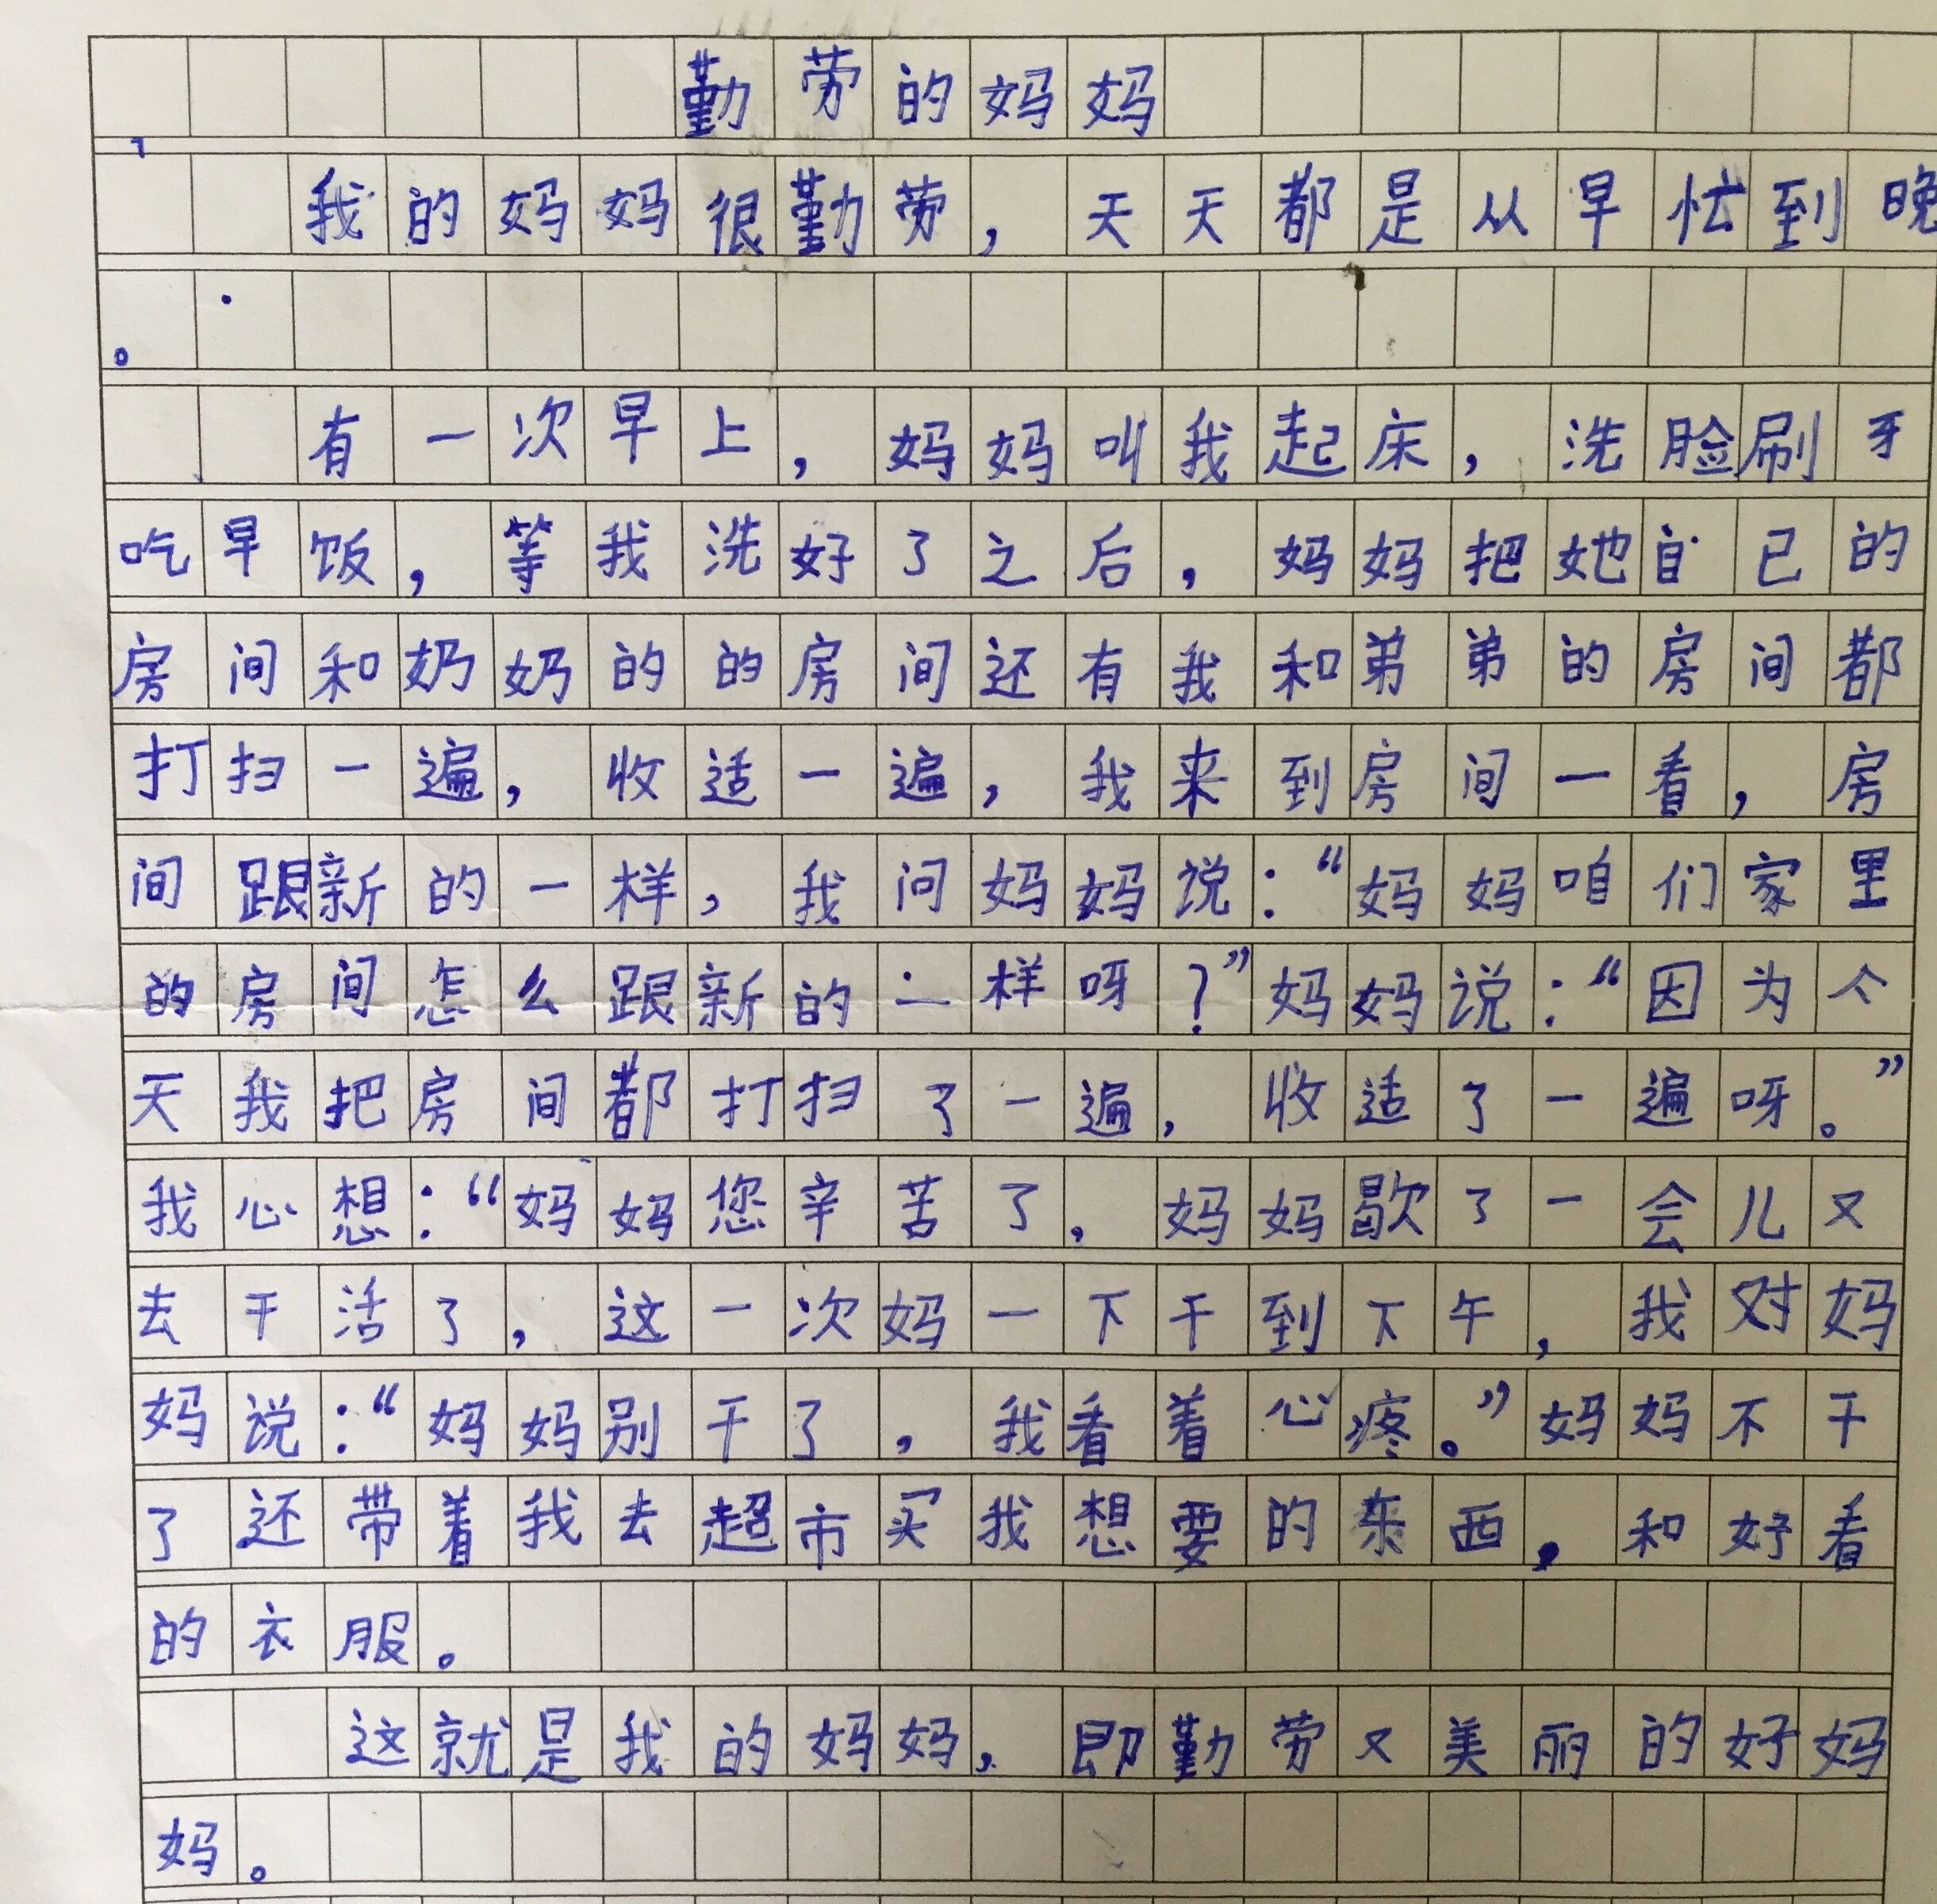 勤劳的妈妈
我的妈妈很勤劳，天天都是从早忙到晚
。
有一次早上，妈妈叫我起床，洗脸刷牙
吃早饭，等我洗好了之后，妈妈把她自己的
房间和奶奶的的房间还有我和弟弟的房间都
打扫一遍，收适一遍，我来到房间一看，房
间跟新的一样，我问妈妈说：“妈妈咱们家里
的房间怎么跟新的一样呀？”妈妈说：“因为今
天我把房间都打扫了一遍，收适了一遍呀。”
我心想：“妈妈您辛苦了，妈妈歇了一会儿又
去干活了，这一次妈一下干到下午，我对妈
妈说：“妈妈别干了，我看着心疼。”妈妈不干
了还带着我去超市买我想要的东西，和好看
的衣服。
这就是我的妈妈，即勤劳又美丽的好妈
妈。